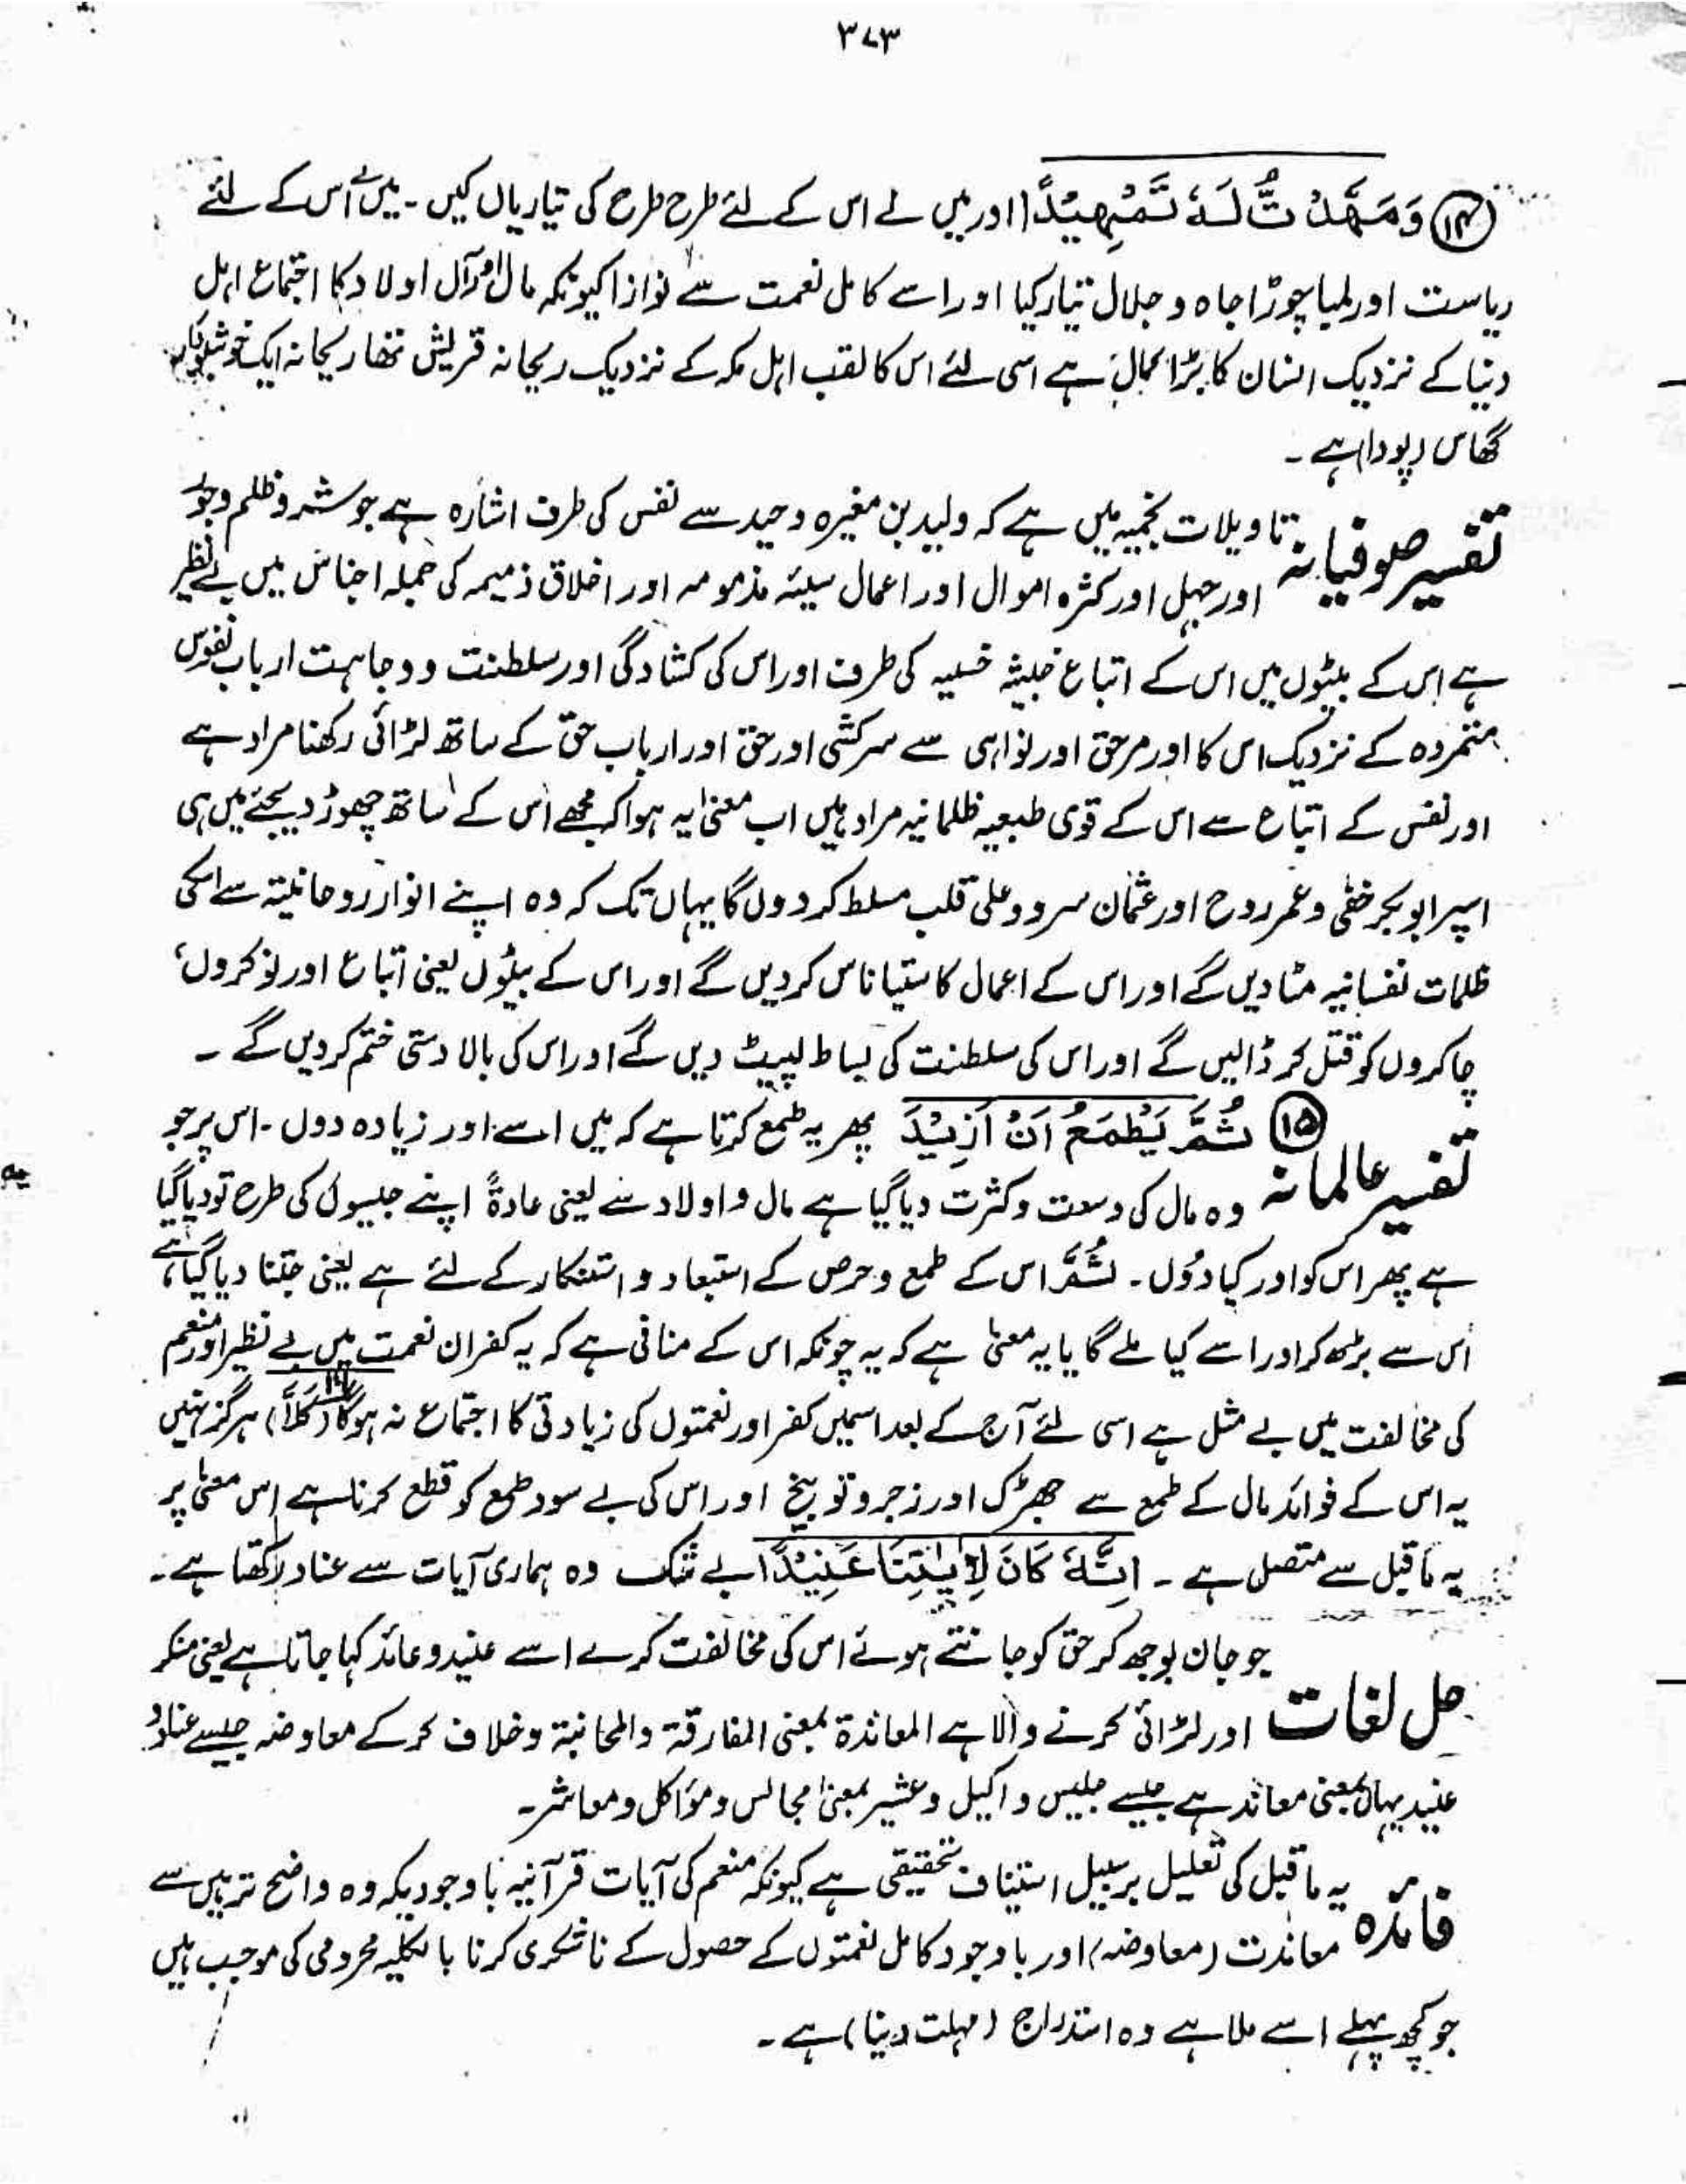 ۳۷۳
(۱۴) وَمَهَّدْتُّ لَهٗ تَمْهِيْدًا (اور میں نے اس کے لئے طرح طرح کی تیاریاں کیں ۔ میں نے اس کے لئے
ریاست اور لمبا چوڑا جاہ و جلال تیار کیا اور اسے کامل نعمت سے نوازا کیونکہ مال اور آل اولاد کا اجتماع اہل
دنیا کے نزدیک انسان کا بڑا کمال ہے اسی لئے اس کا لقب اہل مکہ کے نزدیک ریحانہ قریش تھا ریحانہ ایک خوشبودار
گھاس (پودا) ہے ۔
تفسیر صوفیانہ تاویلات نجمیہ میں ہے کہ ولید بن مغیرہ وحید سے نفس کی طرف اشارہ ہے جو شر و ظلم و جور
اور جہل اور کثرہ اموال اور اعمال سیئہ مذمومہ اور اخلاق ذمیمہ کی جملہ اجناس میں بے نظیر
ہے اس کے بیٹوں میں اس کے اتباع خبیثہ خسیہ کی طرف اور اس کی کشادگی اور سلطنت و وجاہت ارباب نفوس
متمردہ کے نزدیک اس کا اور مرحق اور نواہی سے سرکشی اور حق اور ارباب حق کے ساتھ لڑائی رکھنا مراد ہے
اور نفس کے اتباع سے اس کے قوی طبعیہ ظلمانیہ مراد ہیں اب معنیٰ یہ ہوا کہ مجھے اس کے ساتھ چھوڑ دیجئے میں ہی
اسپر ابوبکر خفی و عمر روح اور عثمان سر و وعلی قلب مسلط کر دوں گا یہاں تک کہ وہ اپنے انوار روحانیۃ سے اسکی
ظلمات نفسانیہ مٹا دیں گے اور اس کے اعمال کا ستیاناس کر دیں گے اور اس کے بیٹوں یعنی اتباع اور نوکروں،
چاکروں کو قتل کر ڈالیں گے اور اس کی سلطنت کی بساط لپیٹ دیں گے اور اس کی بالا دستی ختم کر دیں گے ۔
تفسیر عالمانہ (۱۵) ثُمَّ يَطْمَعُ اَنْ اَزِيْدَ پھر یہ طمع کرتا ہے کہ میں اسے اور زیادہ دوں ۔ اس پر جو
وہ مال کی وسعت و کثرت دیا گیا ہے مال و اولاد سے یعنی عادۃً اپنے جیسوں کی طرح تو دیا گیا
ہے پھر اس کو اور کیا دُوں ۔ ثُمَّ اس کے طمع و حرص کے استبعاد و استنکار کے لئے ہے یعنی جتنا دیا گیا ہے
اس سے بڑھ کر اور اسے کیا ملے گا یا یہ معنیٰ ہے کہ یہ چونکہ اس کے منافی ہے کہ یہ کفران نعمت میں بے نظیر اور منعم
کی مخالفت میں بے مثل ہے اسی لئے آج کے بعد اسمیں کفر اور نعمتوں کی زیادتی کا اجتماع نہ ہوگا (۱۶) (كَلَّا) ہرگز نہیں
یہ اس کے فوائد مال کے طمع سے جھڑک اور زجر و توبیخ اور اس کی بے سود طمع کو قطع کرنا ہے اس معنیٰ پر
یہ ماقبل سے متصل ہے ۔ اِنَّهٗ كَانَ لِاٰيٰتِنَا عَنِيْدًا بے شک وہ ہماری آیات سے عناد رکھتا ہے ۔
حل لغات جو جان بوجھ کر حق کو جانتے ہوئے اس کی مخالفت کرے اسے عنید و عاند کہا جاتا ہے یعنی منکر
اور لڑائی کرنے والا ہے المعاندۃ بمعنی المفارقۃ والمجانبۃ و خلاف کر کے معاوضہ جیسے عناد و
عنید یہاں بمعنی معاند ہے جیسے جلیس و اکیل و عشیر بمعنیٰ مجالس و مؤاکل و معاشر ۔
فائدہ یہ ماقبل کی تعلیل بر سبیل استیناف تحقیقی ہے کیونکہ منعم کی آیات قرآنیہ با وجودیکہ وہ واضح تر ہیں سے
معاندت (معاوضہ) اور باوجود کامل نعمتوں کے حصول کے ناشکری کرنا بالکلیہ محرومی کی موجب ہیں
جو کچھ پہلے اسے ملا ہے وہ استدراج (مہلت دینا) ہے ۔